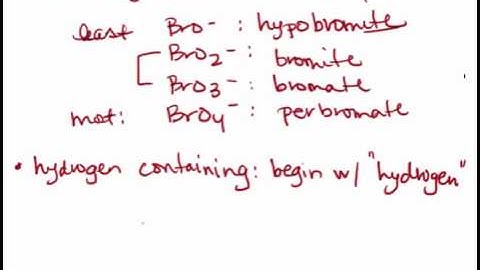 least BrO⁻ : hypobromite
BrO₂⁻ : bromite
BrO₃⁻ : bromate
most: BrO₄⁻ : perbromate
• hydrogen containing: begin w/ "hydrogen"